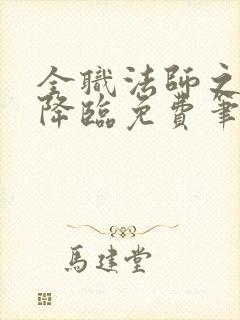 全職法師之
降臨免費筆
馬建堂